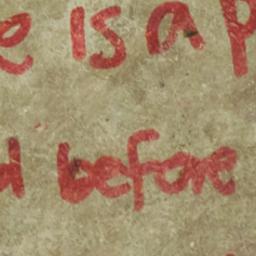 e is a p
d before